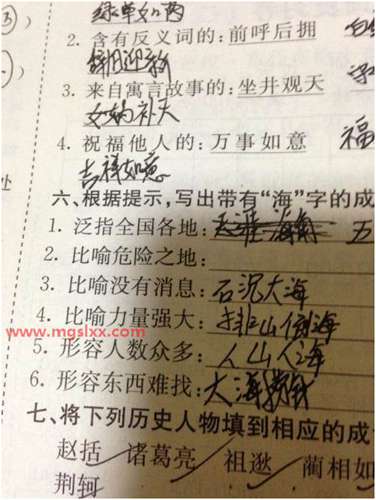 绿草如茵
2. 含有反义词的：前呼后拥
辞旧迎新
3. 来自寓言故事的：坐井观天
女娲补天
4. 祝福他人的：万事如意 福
吉祥如意
六、根据提示，写出带有“海”字的成
1. 泛指全国各地：天涯海角 五
2. 比喻危险之地：
3. 比喻没有消息：石沉大海
4. 比喻力量强大：排山倒海
www.mgslxx.com
5. 形容人数众多：人山人海
6. 形容东西难找：大海捞针
处
七、将下列历史人物填到相应的成
赵括 诸葛亮 祖逖 蔺相如
荆轲